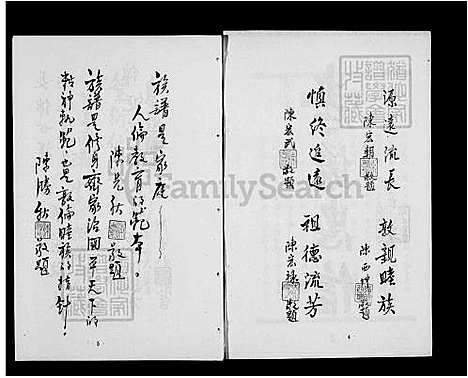 源遠流長
陳宏 敬題
敦親睦族
陳西 敬題
慎終追遠
陳宏武 敬題
祖德流芳
陳宏 敬題
4
族譜是家庭
人倫教育的範本。
陳先秋 敬題
族譜是修身齊家治國平天下的
精神 也是敦倫睦族的
陳勝秋 敬題
5
FamilySearch